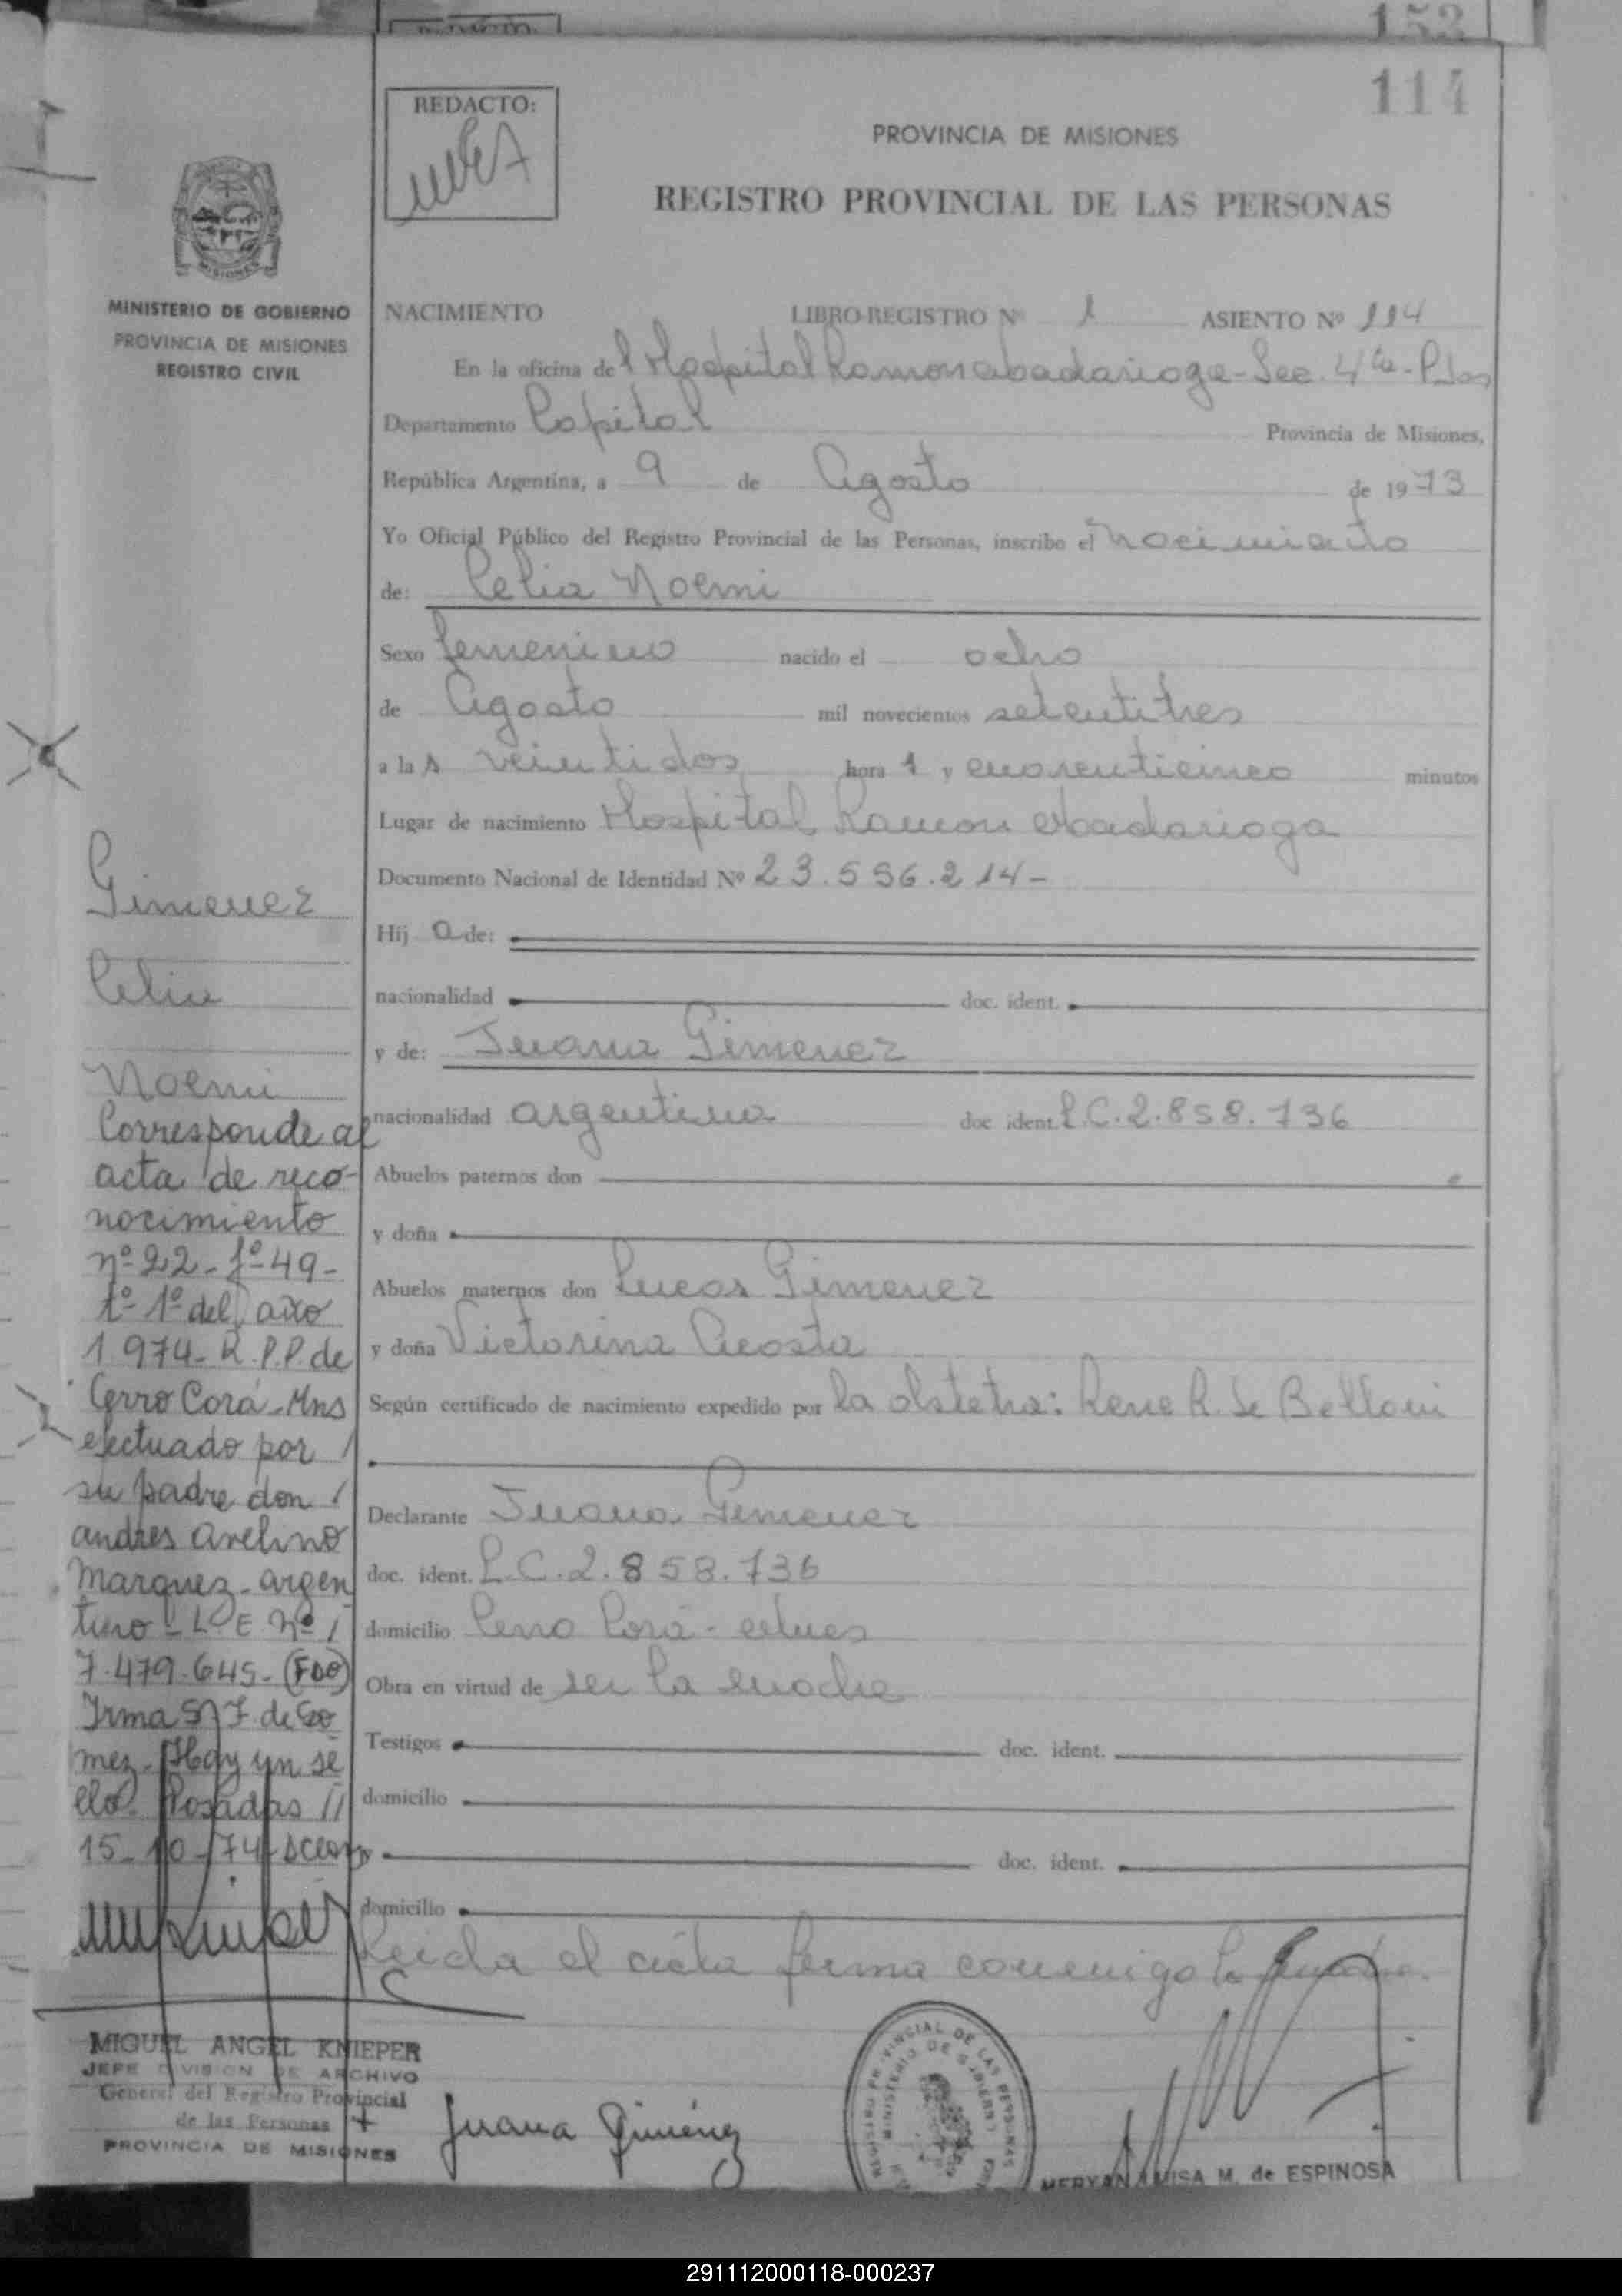 153
114
REDACTO:
PROVINCIA DE MISIONES
REGISTRO PROVINCIAL DE LAS PERSONAS
MISIONES
MINISTERIO DE GOBIERNO
PROVINCIA DE MISIONES
REGISTRO CIVIL
NACIMIENTO LIBRO-REGISTRO Nº 1 ASIENTO Nº 114
En la oficina del Hospital Ramon Madariaga - Sec. 4ta - Pdas
Departamento Capital Provincia de Misiones,
República Argentina, a 9 de Agosto de 1973
Yo Oficial Público del Registro Provincial de las Personas, inscribo el nacimiento
de: Celia Noemi
Sexo femenino nacido el ocho
de Agosto mil novecientos setentitres
a las veintidos horas y cuarenticinco minutos
Lugar de nacimiento Hospital Ramon Madariaga
Documento Nacional de Identidad Nº 23.556.214-
Hija de:
nacionalidad doc. ident.
y de: Juana Gimenez
nacionalidad argentina doc. ident. L.C. 2.858.736
Abuelos paternos don
y doña
Abuelos maternos don Lucas Gimenez
y doña Victorina Acosta
Según certificado de nacimiento expedido por la obstetra: Rene R. de Belloni
Declarante Juana Gimenez
doc. ident. L.C. 2.858.736
domicilio Cerro Corá - Mnes
Obra en virtud de ser la madre
Testigos doc. ident.
domicilio
y doc. ident.
domicilio
Leida el acta firma conmigo la
Gimenez
Celia
Noemi
Corresponde al
acta de reco-
nocimiento
nº 22 - fº 49 -
tº 1º del año
1.974 - R.P.P. de
Cerro Corá - Mns
efectuado por
su padre don
andres avelino
Marquez - argen
tino - L.E. nº
7.479.645 - (FDO)
Irma S. F. de Go
mez - Hay un se
llo. Posadas
15-10-74
MIGUEL ANGEL KNIEPER
JEFE DIVISION DE ARCHIVO
General del Registro Provincial
de las Personas
PROVINCIA DE MISIONES
Juana Giménez
M. de ESPINOSA
291112000118-000237